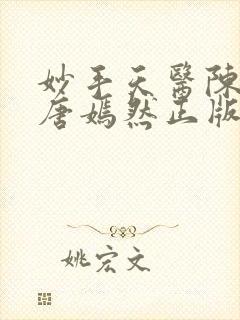 妙手天醫陳
唐嫣然正版
姚宏文